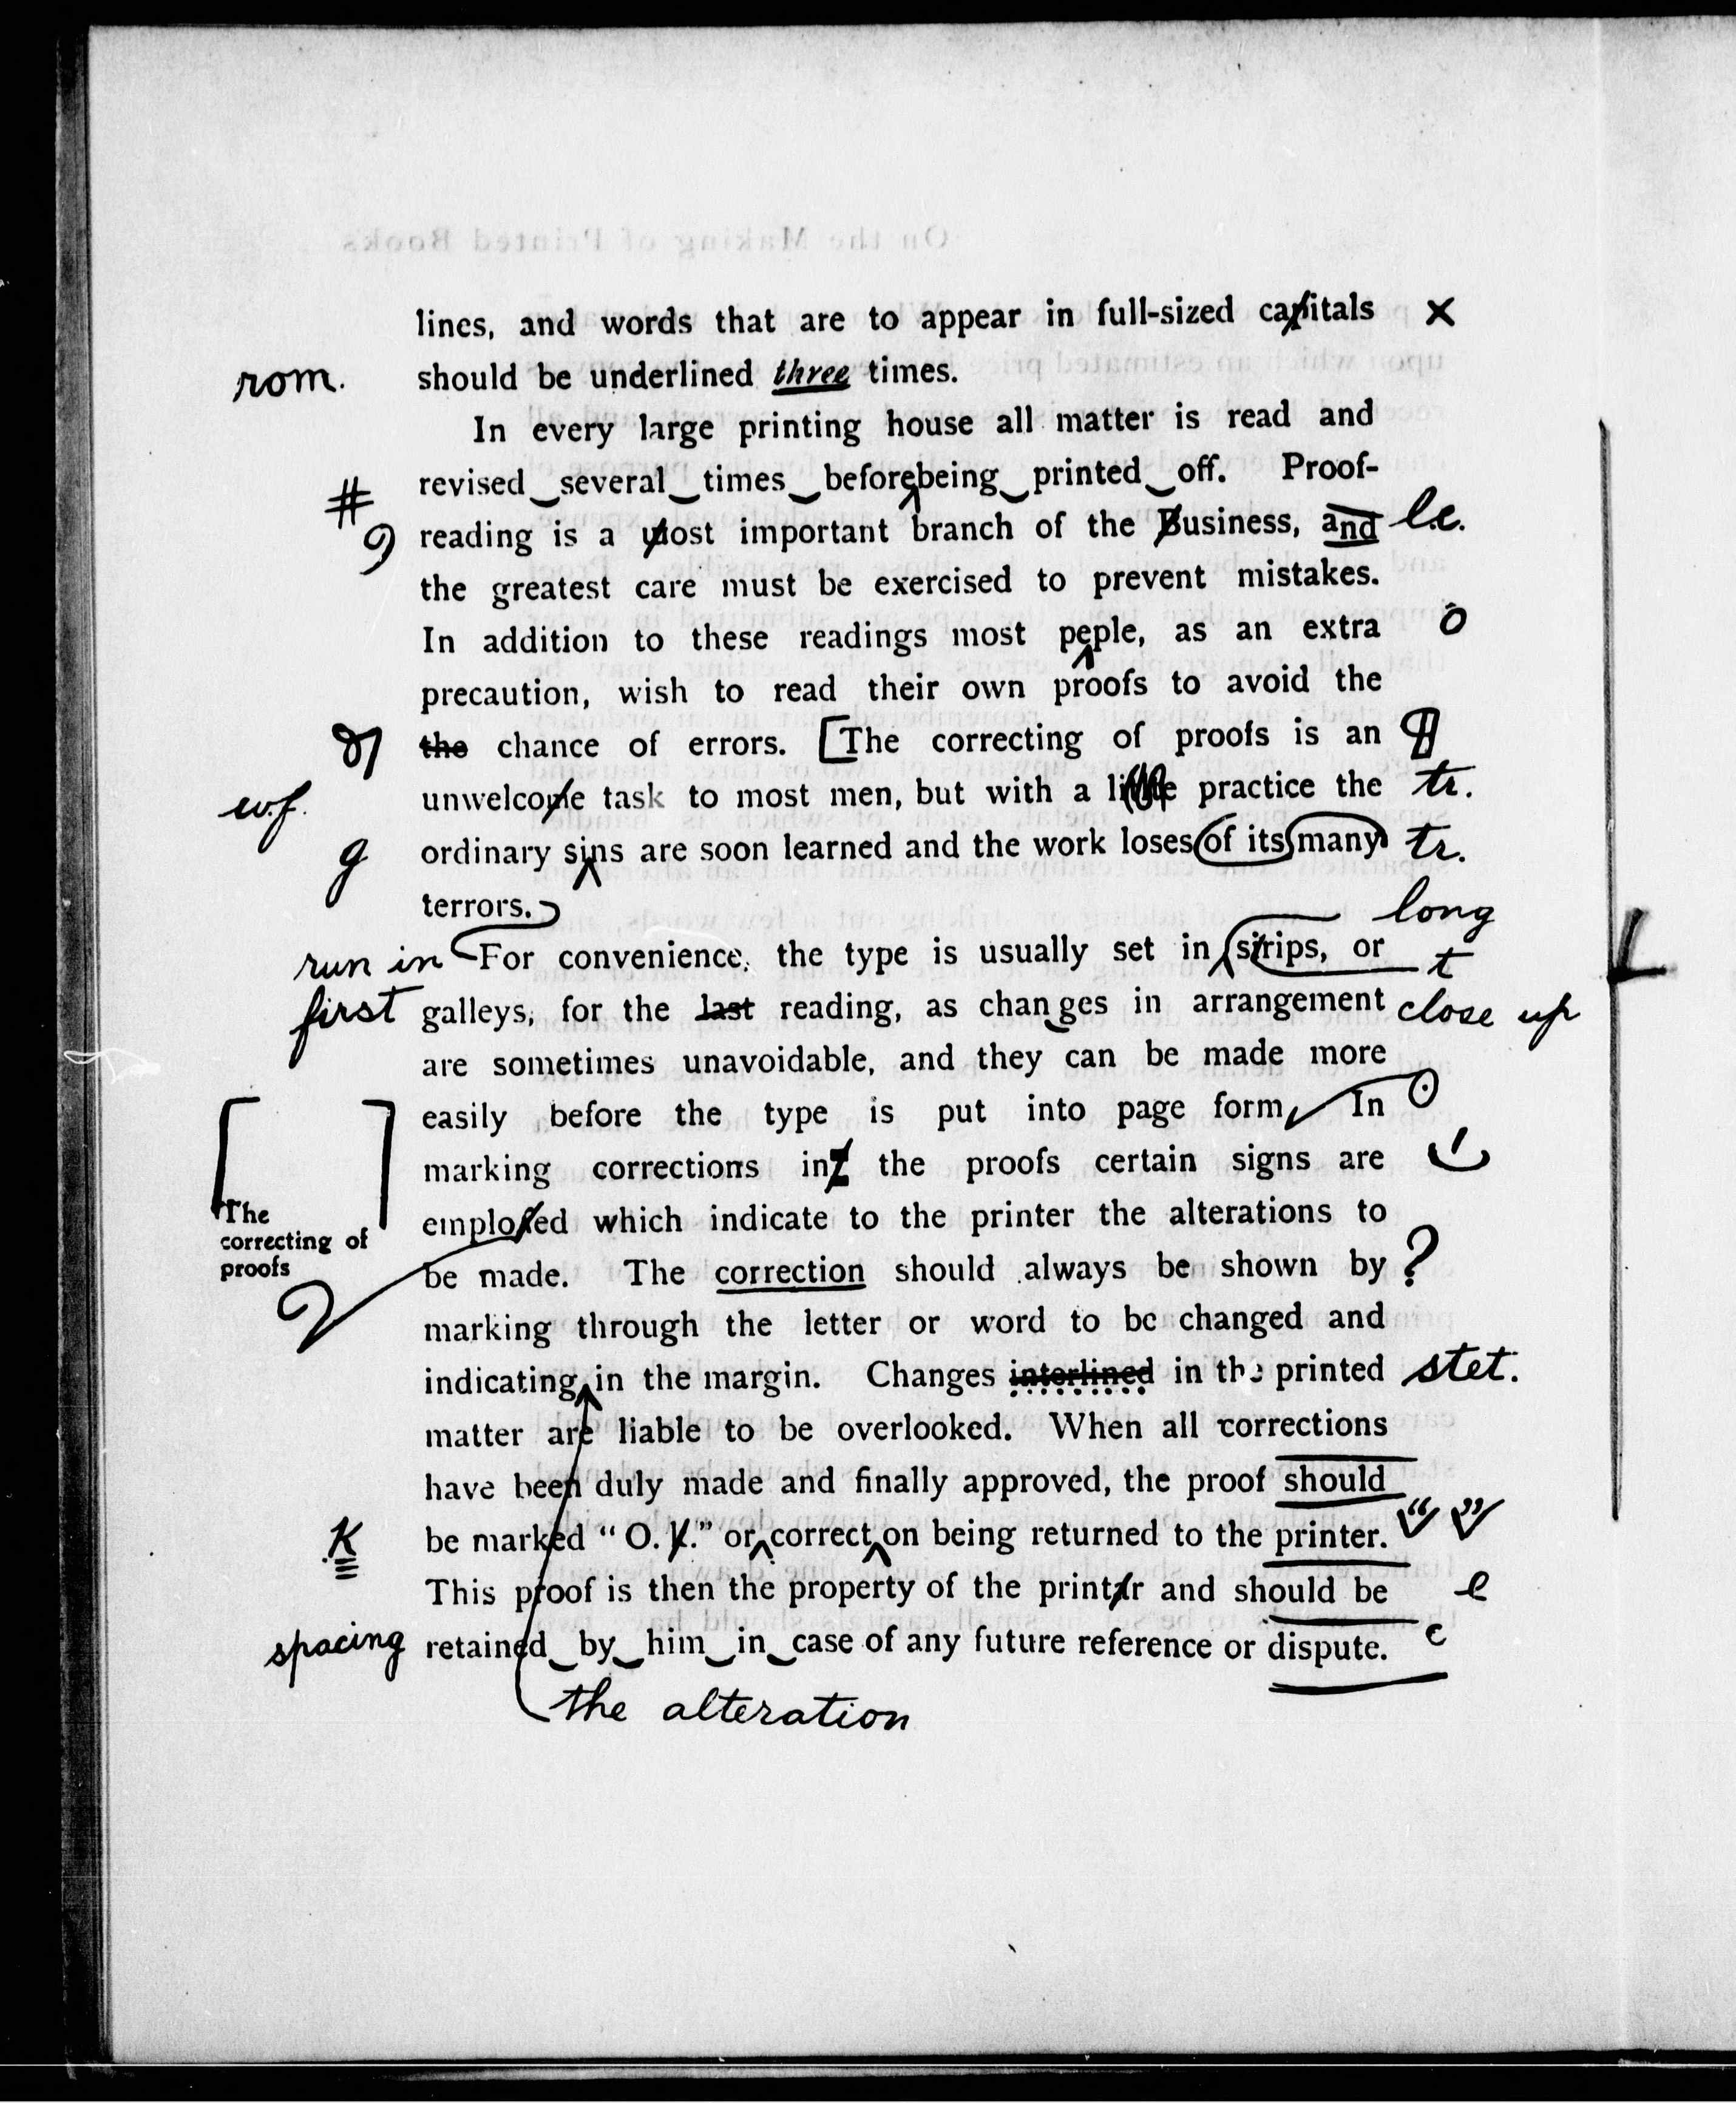 On the Making of Printed Books
lines, and words that are to appear in full-sized capitals ×
rom. should be underlined three times.
In every large printing house all matter is read and
# revised several times beforebeing printed off. Proof-
9 reading is a most important branch of the Business, and l.c.
the greatest care must be exercised to prevent mistakes.
In addition to these readings most peple, as an extra o
precaution, wish to read their own proofs to avoid the
the chance of errors. [The correcting of proofs is an ¶
w.f. unwelcome task to most men, but with a little practice the tr.
g ordinary sins are soon learned and the work loses of its many tr.
terrors.
long
run in For convenience, the type is usually set in strips, or t
first galleys, for the last reading, as chan ges in arrangement close up
are sometimes unavoidable, and they can be made more
easily before the type is put into page form, In ⊙
marking corrections in the proofs certain signs are
The
correcting of
proofs
employed which indicate to the printer the alterations to
be made. The correction should always be shown by ?
marking through the letter or word to be changed and
indicating in the margin. Changes interlined in the printed stet.
matter are liable to be overlooked. When all corrections
have been duly made and finally approved, the proof should
K be marked “ O. k.” or correct on being returned to the printer. “ ”
This proof is then the property of the printer and should be e
spacing retained by him in case of any future reference or dispute. c
the alteration